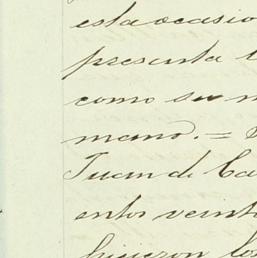 esta ocasio
presenta
como su m
mano. =
Juan de Ca
entos veint
hicieron los